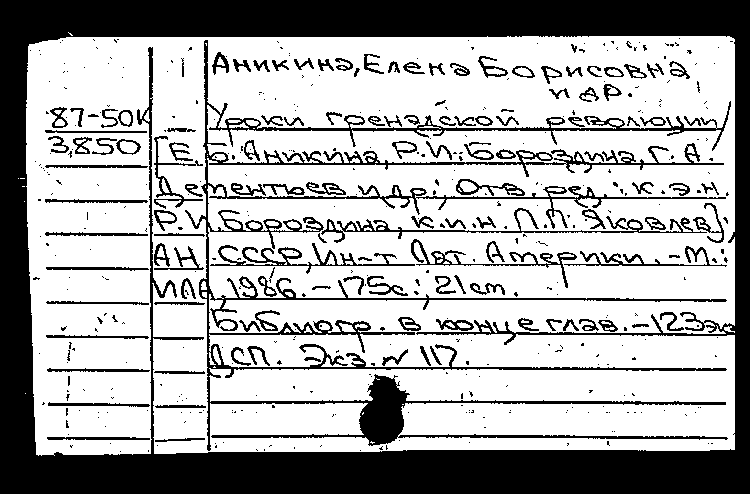 Аникина, Елена Борисовна
и др.
87-50К Уроки гренадской революции /
3850 [Е.Б. Аникина, Р.И. Бороздина, Г.А.
Дементьев и др.; Отв. ред.: к.э.н.
Р.И. Бороздина, к.и.н. П.П. Яковлев];
АН СССР, Ин-т Лат. Америки. - М.:
ИЛА, 1986. - 175с.; 21 cm.
Библиогр. в конце глав. - 123 экз
ДСП. Экз. № 117.